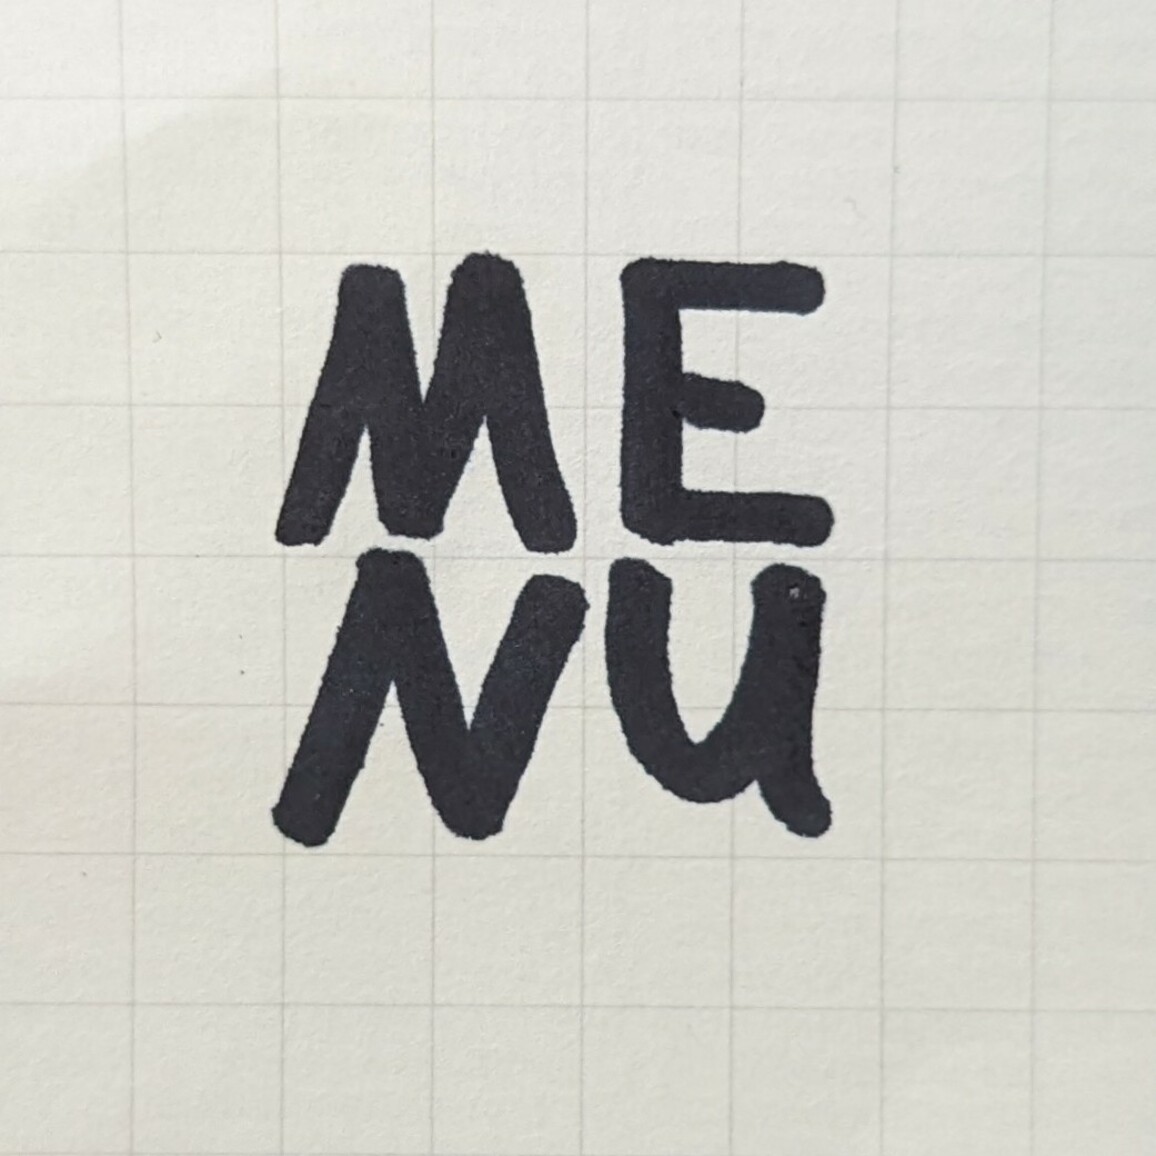 ME
NU